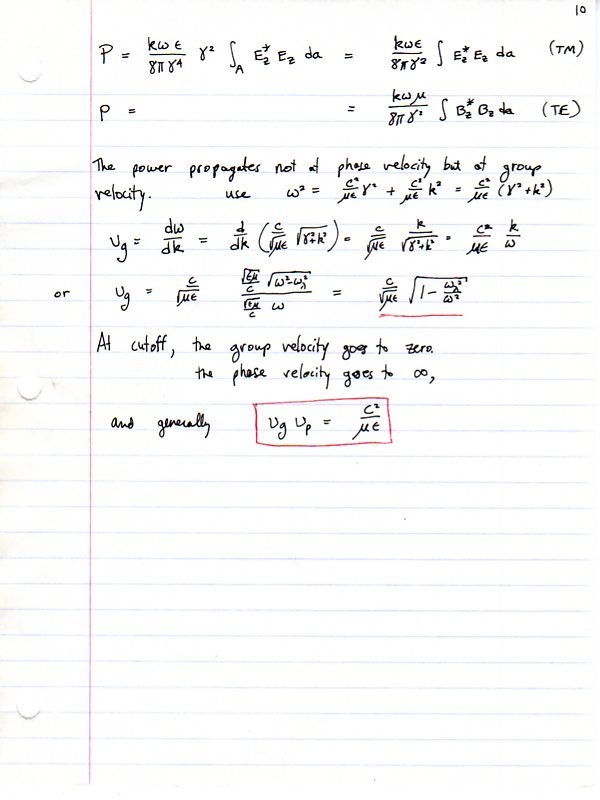 10
P = kωε/8πγ⁴ γ² ∫_A E_z* E_z da = kωε/8πγ² ∫ E_z* E_z da (TM)
P = = kωμ/8πγ² ∫ B_z* B_z da (TE)
The power propagates not at phase velocity but at group
velocity. use ω² = c²/με γ² + c²/με k² = c²/με (γ²+k²)
υ_g = dω/dk = d/dk (c/√με √γ²+k²) = c/√με k/√γ²+k² = c²/με k/ω
or υ_g = c/√με (√εμ/c √ω²-ω_λ²)/(√εμ/c ω) = c/√με √1 - ω_λ²/ω²
At cutoff, the group velocity goes to zero.
the phase velocity goes to ∞,
and generally υ_g υ_p = c²/με